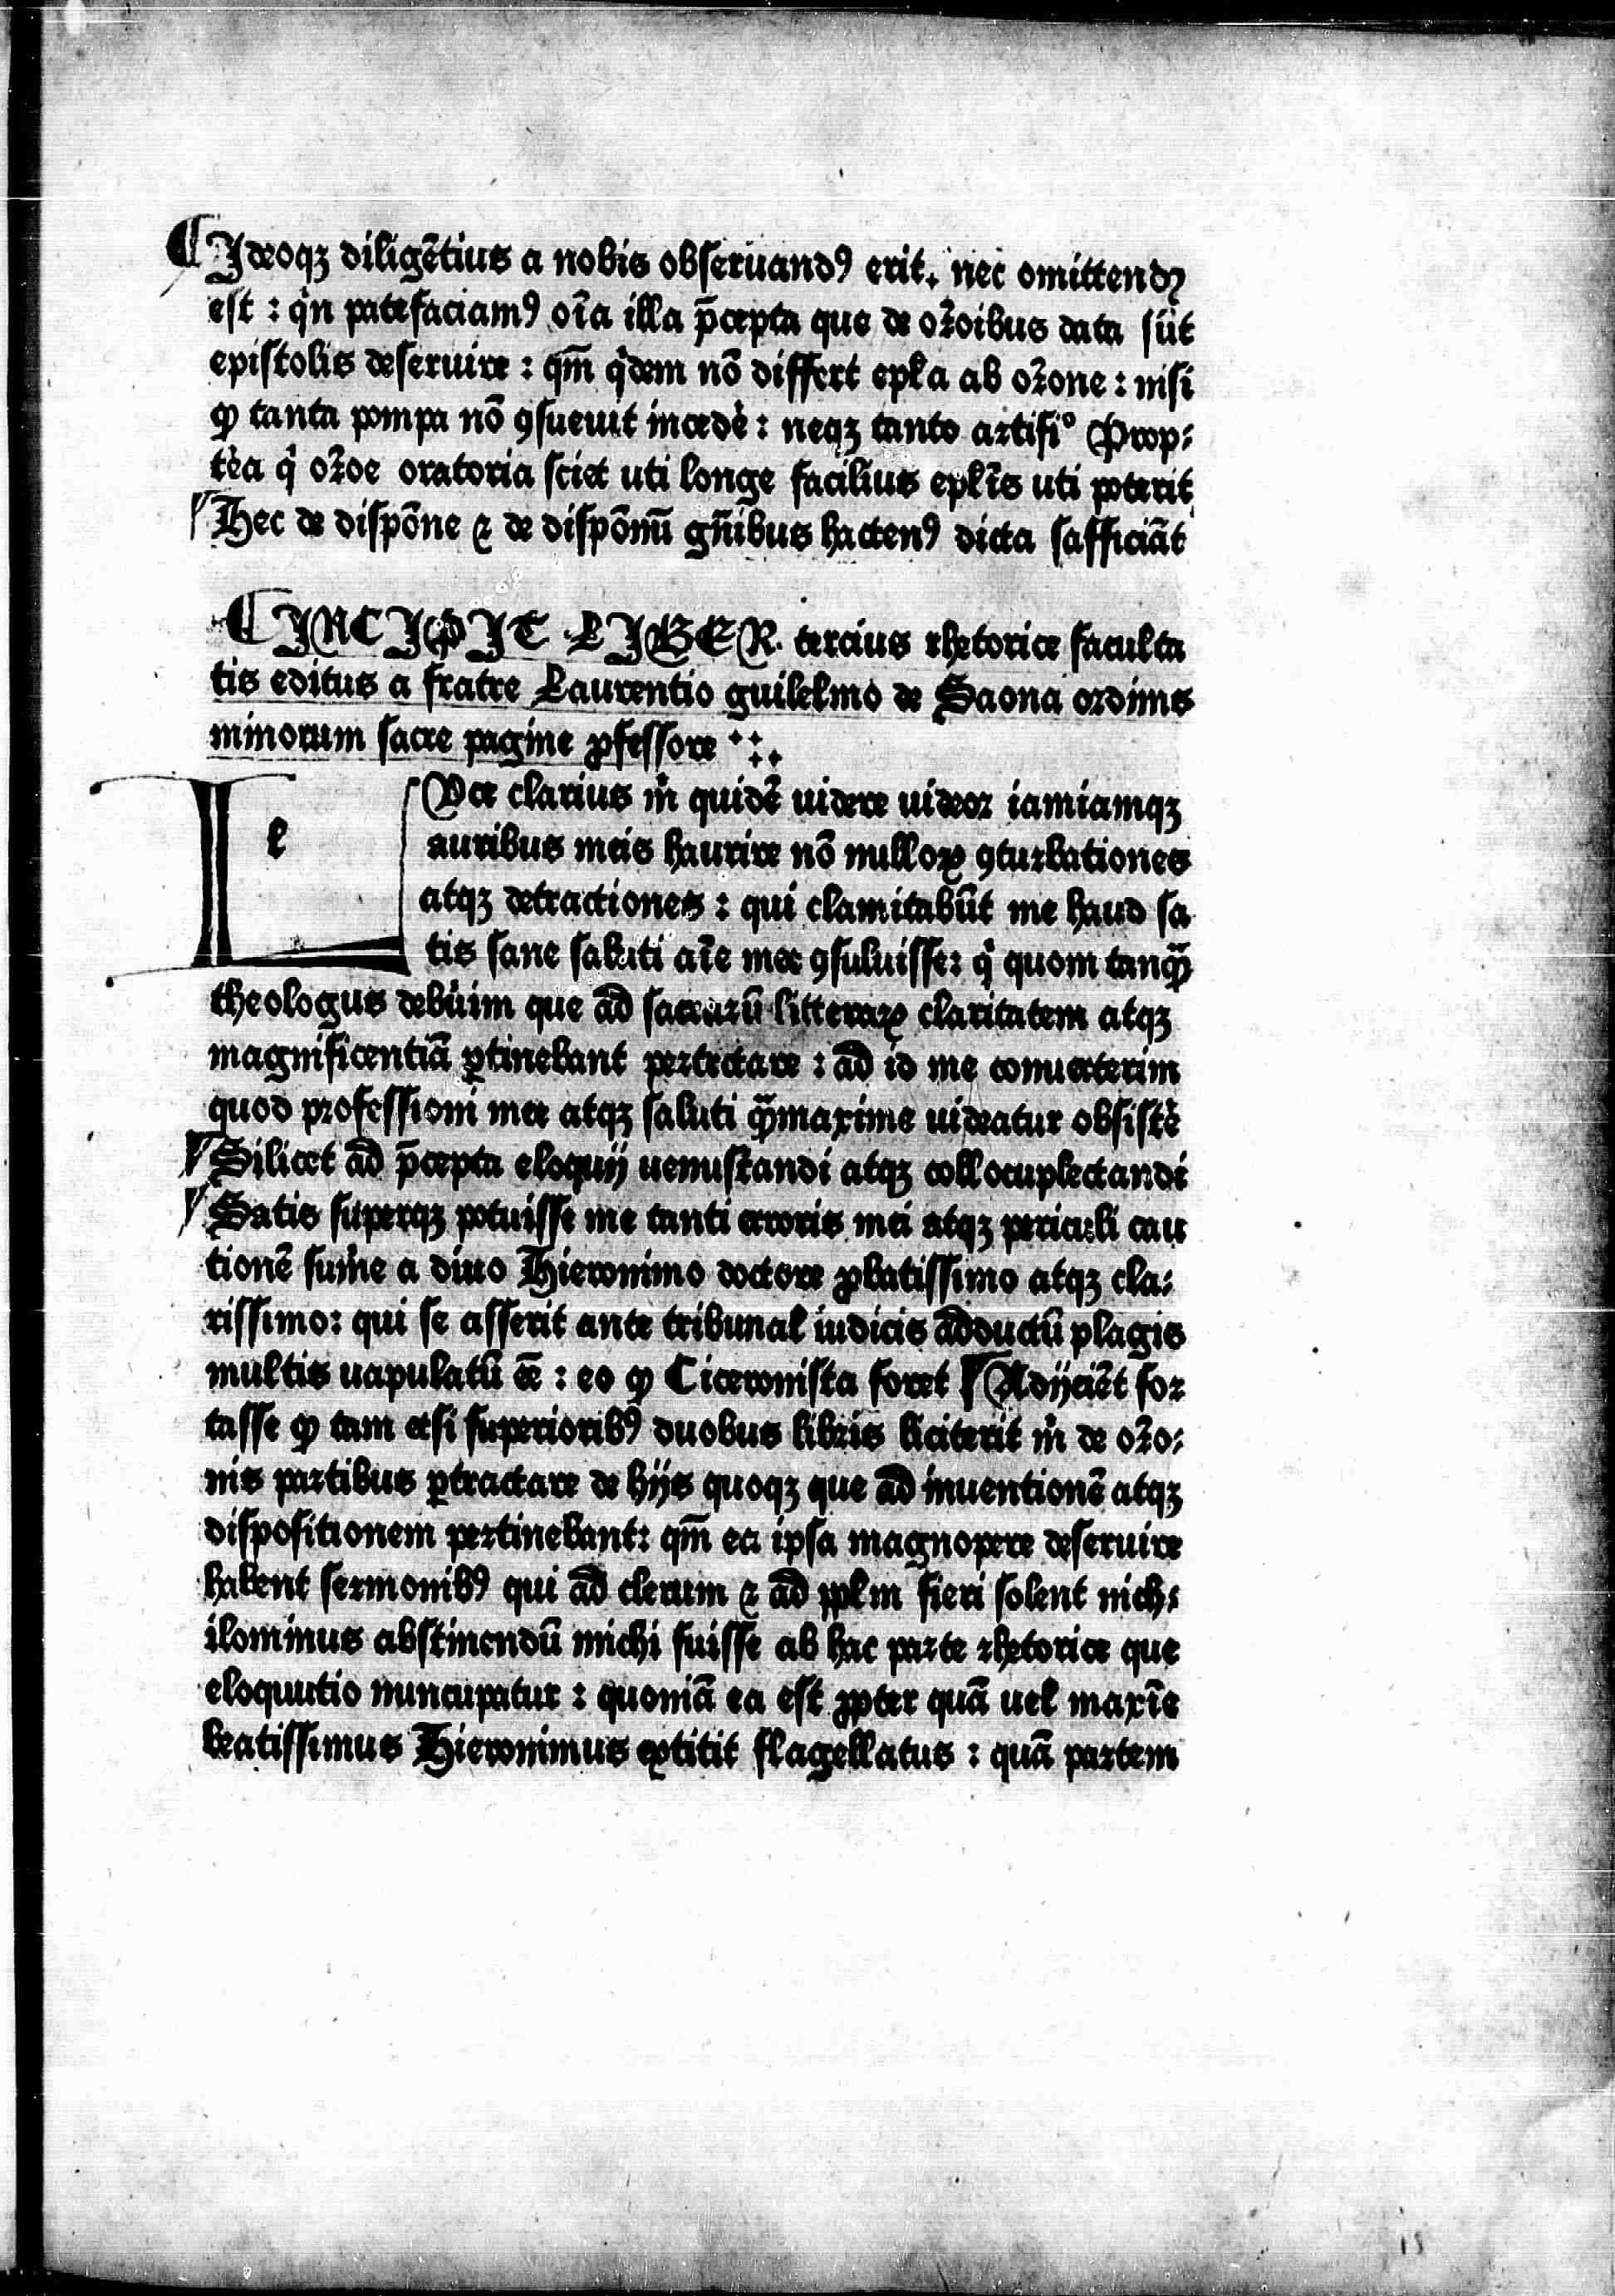 ¶ Ideoqꝫ diligētius a nobis obſeruandꝰ erit. nec omittendꝫ
eſt : qͥn patefaciamꝰ oīa illa p̄cepta que de oꝛ̄oibus data ſūt
epiſtolis deſeruire : qm̄ qͥdem nō differt epƚa ab oꝛ̄one : niſi
ꝙ tanta pompa nō ꝯſueuit incede᷑ : neqꝫ tanto aꝛtifiº Prop⸗
te᷑a qͥ oꝛ̄oe oratoria ſciet uti longe facilius epƚis uti poterit
Hec de diſpōne ⁊ de diſpōnū gn̄ibus hactenꝰ dicta ſafficiāt
¶ INCIPIT LIBER. tercius rhetorice faculta
tis editus a fratre Laurentio guilelmo de Saona oꝛdinis
minorum ſacre pagine ꝓfeſſore
l
Vce clarius mͥ quidē uidere uideoꝛ iamiamqꝫ
auribus meis haurire nō nulloꝝ ꝯtuꝛbationes
atqꝫ detractiones : qui clamitabūt me haud ſa
tis ſane ſaluti aīe mee ꝯſuluiſſe: qͥ quom tanꝙ̄
theologus debuim que ad ſacraꝛū litteraꝝ claritatem atqꝫ
magnificentiā ꝑtinebant peꝛtectare : ad id me conuerterim
quod pꝛofeſſioni mee atqꝫ ſaluti ꝙ̄maxime uideatur obſiſte᷑
Silicet ad p̄cepta eloquij uenuſtandi atqꝫ collocuplectandi
Satis ſuperqꝫ potuiſſe me tanti erroris mei atqꝫ periculi cau
tionē ſum᷑e a diuo Hieronimo doctore ꝓbatiſſimo atqꝫ cla⸗
riſſimo: qui ſe aſſerit ante tribunal iudicis adductū plagis
multis uapulatū ēē : eo ꝙ Ciceroniſta foret ¶ Adijciēt foꝛ
taſſe ꝙ tam etſi ſuperioribꝰ duobus libꝛis liciterit mͥ de oꝛ̄o⸗
nis paꝛtibus ꝑtractare de hijs quoqꝫ que ad inuentionē atqꝫ
diſpoſitionem peꝛtinebant: qm̄ ea ipſa magnopere deſeruire
habent ſeꝛmonibꝰ qui ad clerum ⁊ ad ppƚm fieri ſolent nich⸗
ilominus abſtinendū michi fuiſſe ab hac paꝛte ꝛhetorice que
eloquutio nuncupatur : quoniā ea eſt ꝓpter quā uel maxīe
beatiſſimus Hieronimus extitit flagellatus : quā paꝛtem